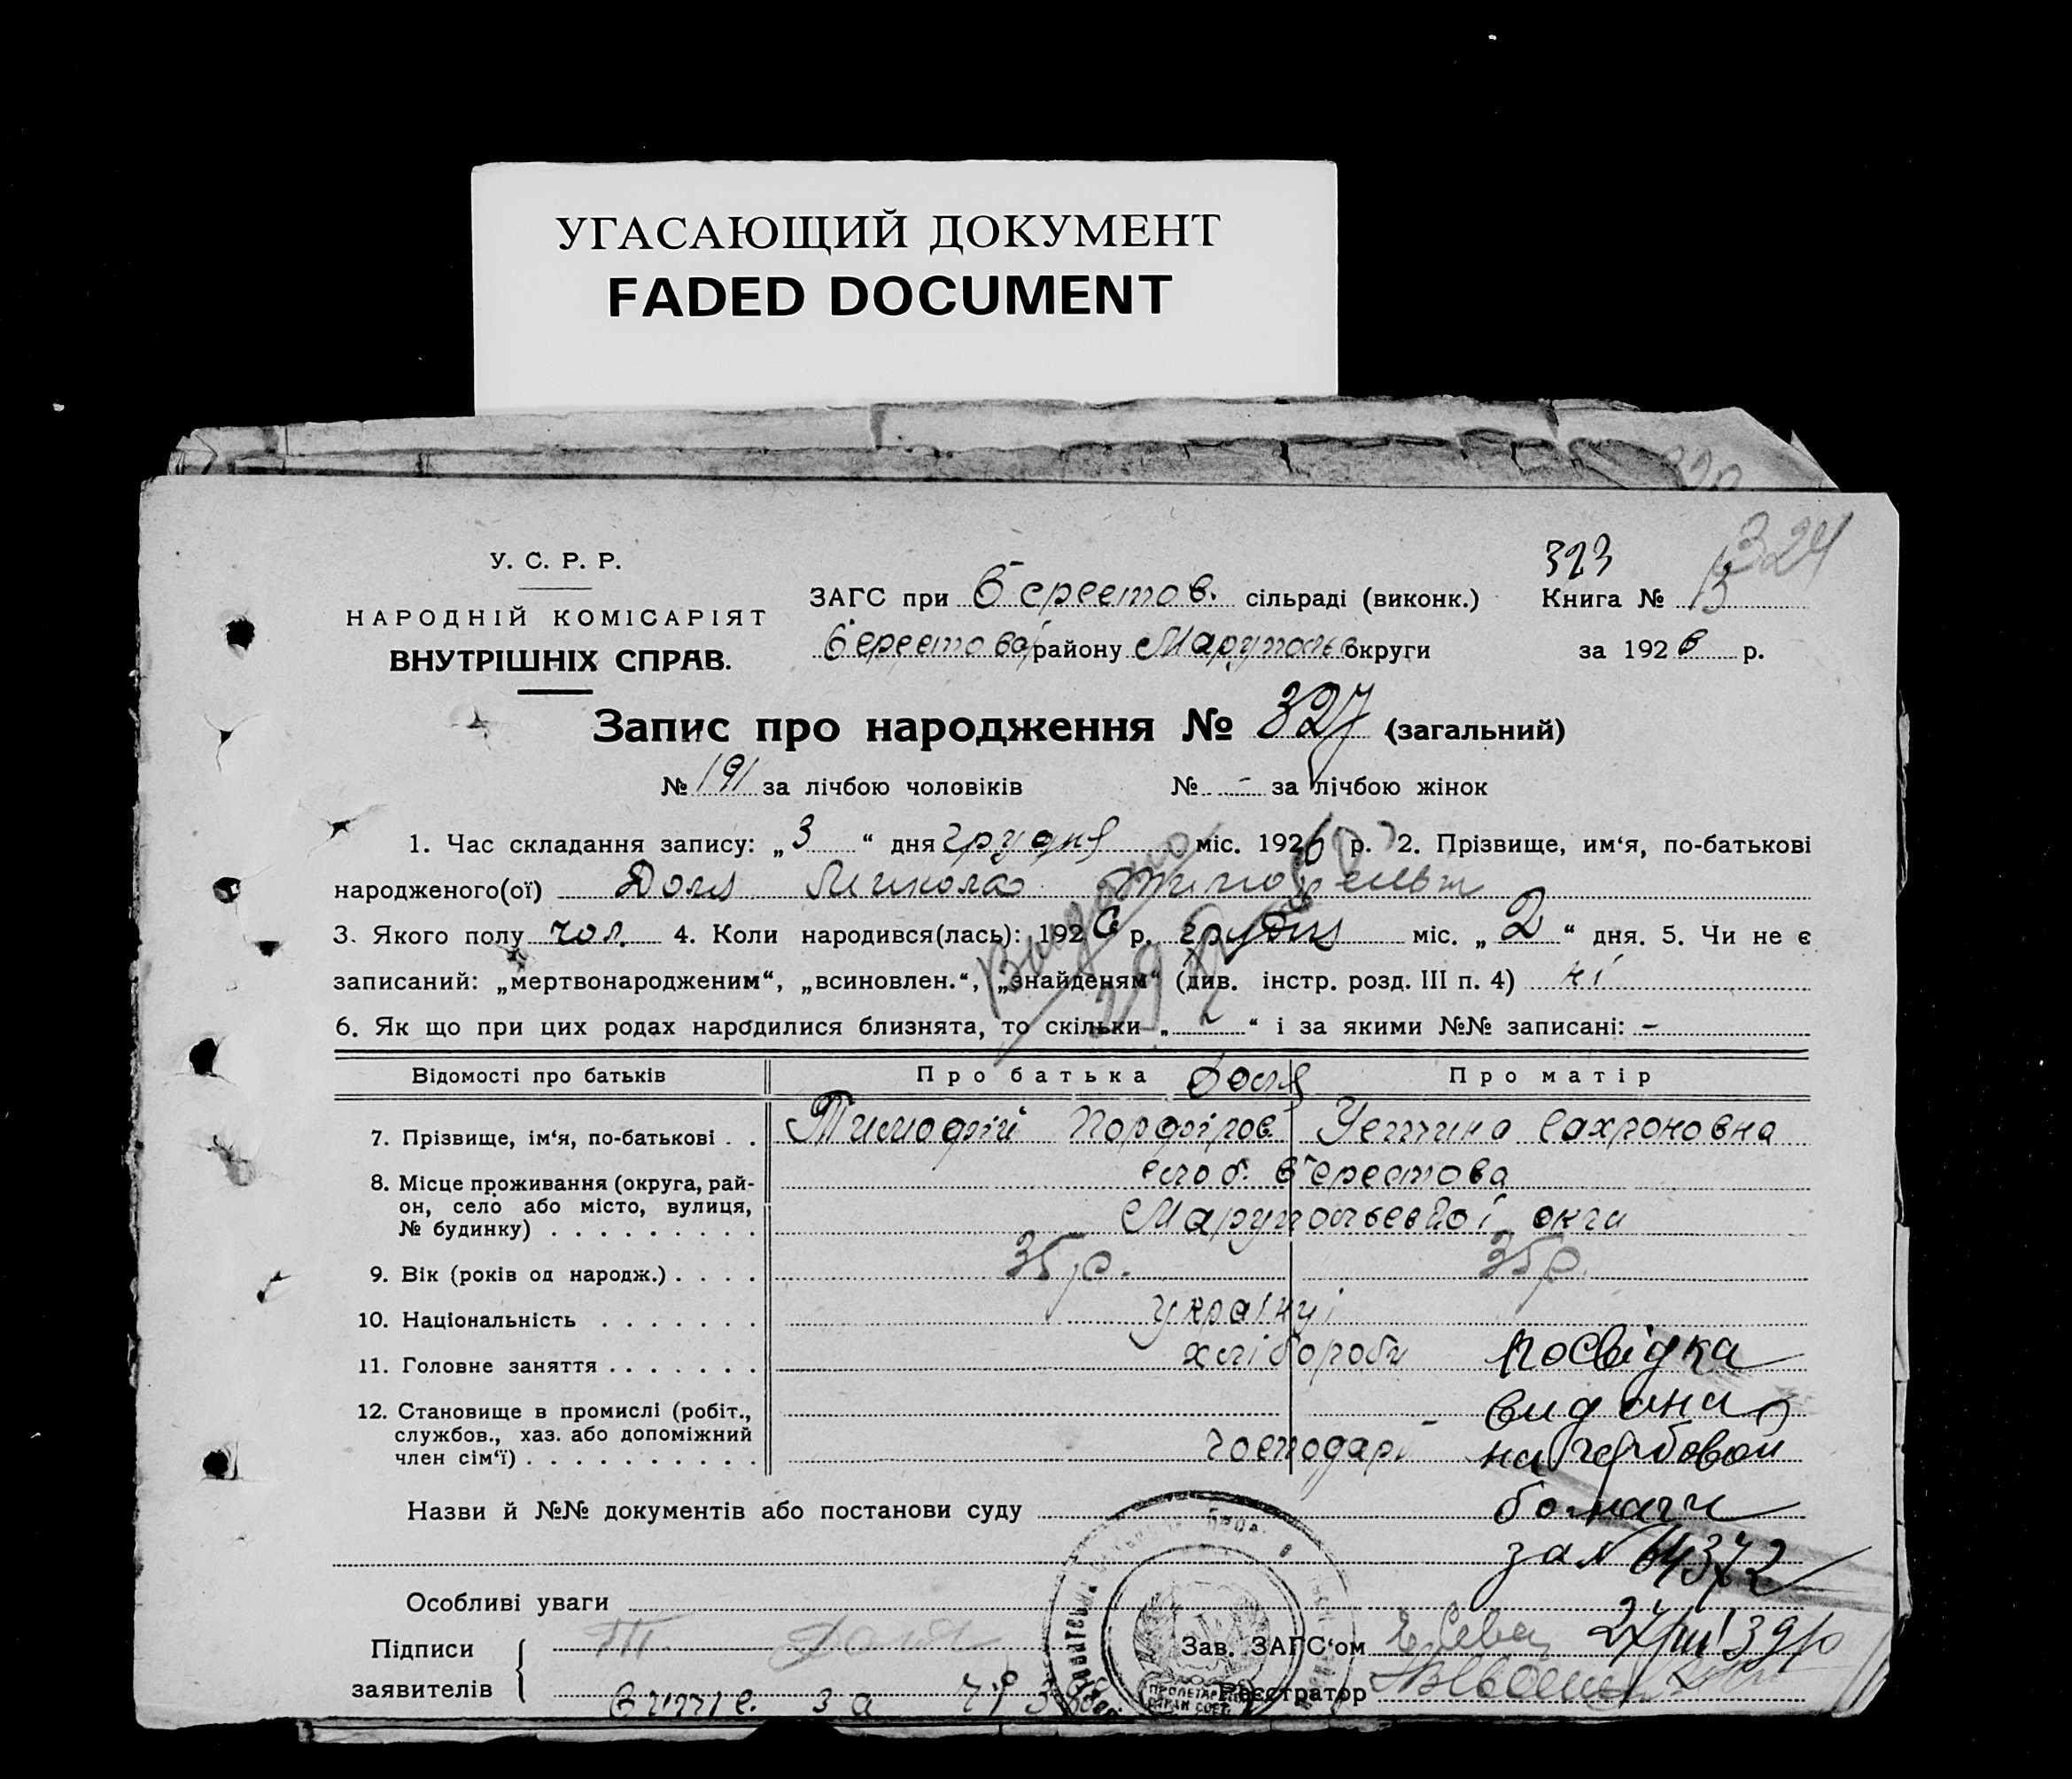 УГАСАЮЩИЙ ДОКУМЕНТ
FADED DOCUMENT
324
323
У. С. Р. Р.
НАРОДНІЙ КОМІСАРІЯТ
ВНУТРІШНІХ СПРАВ.
ЗАГС при Берестов. сільраді (виконк.)
Книга № 13
району округи
за 1926 р.
Запис про народження № 327 (загальний)
№ 191 за лічбою чоловіків № - за лічбою жінок
1. Час складання запису: „3“ дня грудня міс. 1926 р. 2. Прізвище, им‘я, по-батькові
народженого(ої) Доля Микола
3. Якого полу чол. 4. Коли народився(лась): 1926 р. грудня міс. „2“ дня. 5. Чи не є
записаний: „мертвонародженим“, „всиновлен.“, „знайденям“ (див. інстр. розд. III п. 4) ні
6. Як що при цих родах народилися близнята, то скільки „ “ і за якими №№ записані: -
Видано
Відомості про батьків Про батька Про матір
Доля
7. Прізвище, ім‘я, по-батькові . . Тимофій Порфіров. Устина Сахроновна
8. Місце проживання (округа, рай-
он, село або місто, вулиця,
№ будинку) . . . . . . . . .
слоб. Берестова
окги
9. Вік (років од народж.) . . . . 35 р. 35 р.
10. Національність . . . . . . . українці
11. Головне заняття . . . . . . . хлібороби
12. Становище в промислі (робіт.,
службов., хаз. або допоміжний
член сім‘ї) . . . . . . . . . .
господарі
посвідка
видана
на гербовой
бомаги
за № 64372
Назви й №№ документів або постанови суду
Особливі уваги
Підписи
заявителів
Т. Доля
Зав. ЗАГС‘ом
Реєстратор